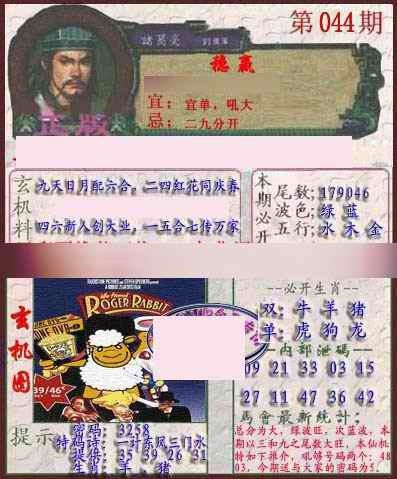 第044期
諸葛亮
稳赢
宜：宜单，吼大
忌：二九分开
正版
玄机料
九天日月配六合，二四红花同庆春
四六浙人创大业，一五合七传万家
本期必开
尾数：179046
波色：绿 蓝
五行：水 木 金
玄机图
ROGER RABBIT
39/46
--必开生肖--
双：牛 羊 猪
单：虎 狗 龙
--内部泄码--
09 21 33 03 15
27 11 47 36 42
马會最新统计：
总分为大，绿波旺，次蓝波，本
期以三和九之尾数大旺，本仙机
特如下推介，吼够号码两个：48
03，今期送与大家的密码为5.
提示
密码：3258
特码诗：一计东风三门水
提供：35 39 26 31
生肖：羊、猪